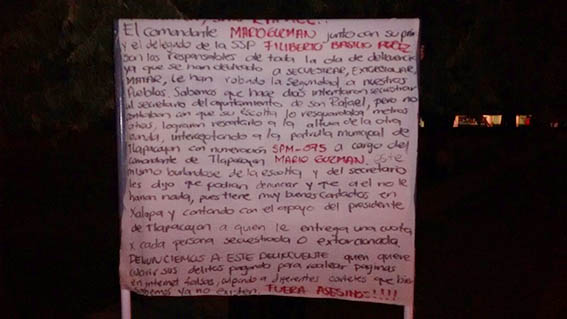 El comandante MARIO GUZMAN junto con su
y el delegado de la SSP FILIBERTO BASILIO
son los responsables de toda la ola de delincuencia
ya que se han dedicado a SECUESTRAR, EXTORSIONAR,
MATAR, Le han robado la seguridad a nuestros
Pueblos. Sabemos que hace dias intentaron secuestrar
al secretario del ayuntamiento de san Rafael, pero no
contaban con que su Escolta lo resguardaba metros
atras, lograron rescatarlo a la altura de la otra
interceptando a la patrulla municipal de
Tlapacoyan con numeración SPM-075 a cargo del
comandante de Tlapacoyan MARIO GUZMAN. este
mismo burlandose de la escolta y del secretario
les dijo que podian denunciar y que a el no le
harian nada, pues tiene muy buenos contactos en
Xalapa y contando con el apoyo del presidente
de Tlapacoyan a quien le entrega una cuota
x cada persona secuestrada o extorcionada.
DENUNCIEMOS A ESTE DELINCUENTE quien quiere
cubrir sus delitos pagando para realizar paginas
en internet falsas, culpando a diferentes carteles que bien
sabemos ya no existen. FUERA ASESINO-!!!!